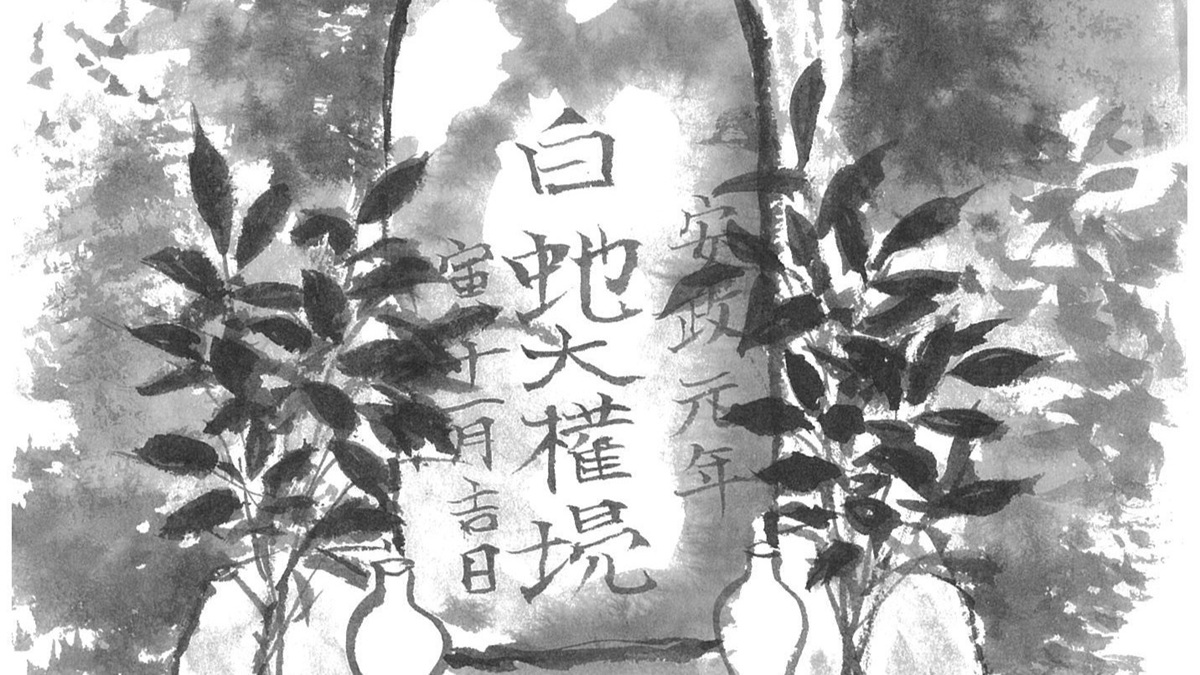 安政元年
白虵大權現
寅十一月吉日